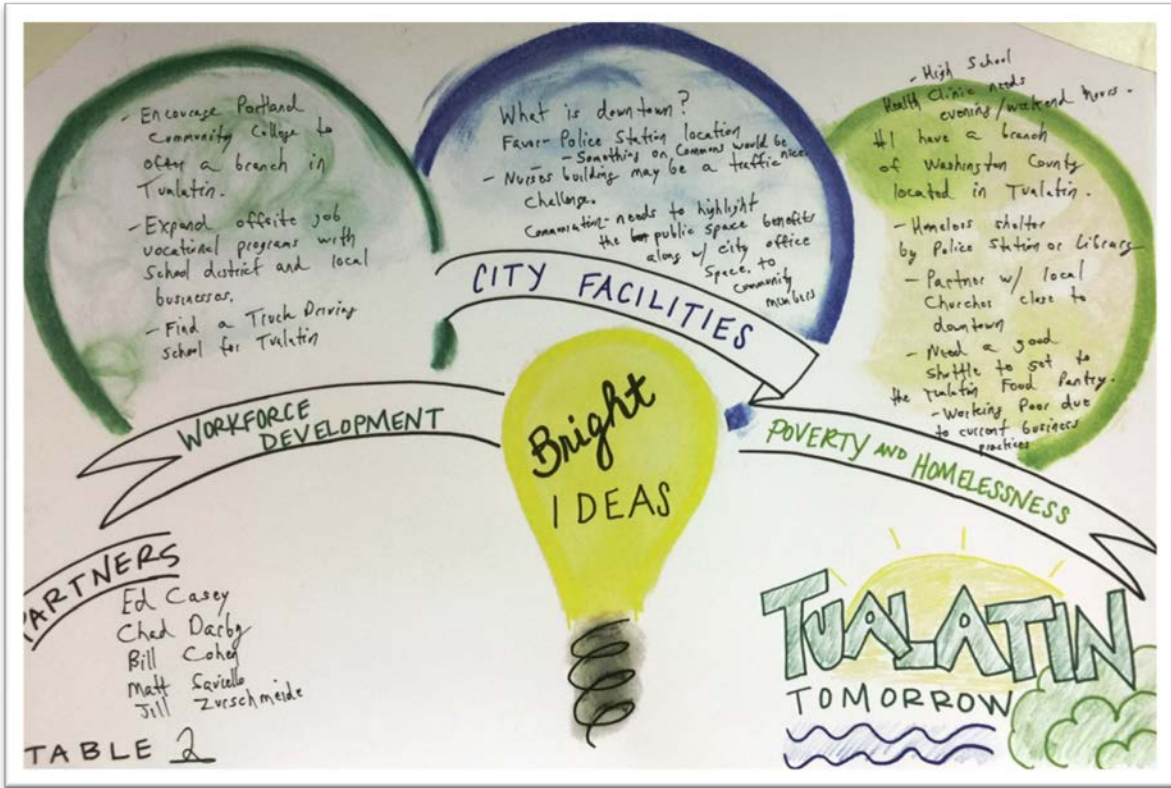 - Encourage Portland
Community College to
offer a branch in
Tualatin.
- Expand offsite job
vocational programs with
School district and local
businesses.
- Find a Truck Driving
School for Tualatin
WORKFORCE
DEVELOPMENT
What is downtown?
Favor - Police Station location
- Something on Commons would be
nice.
- Nurses building may be a traffic
challenge.
Communication - needs to highlight
the public space benefits
along w/ city office
space. to
community
members
CITY FACILITIES
- High School
Health Clinic needs
evening/weekend hours.
#1 have a branch
of Washington County
located in Tualatin.
- Homeless shelter
by Police Station or Library
- Partner w/ local
Churches close to
downtown
- Need a good
shuttle to get to
the Tualatin Food Pantry.
- Working Poor due
to current business
practices
POVERTY AND HOMELESSNESS
Bright
IDEAS
PARTNERS
Ed Casey
Chad Darby
Bill Cohen
Matt
Jill Zurschmeide
TABLE 2
TUALATIN
TOMORROW